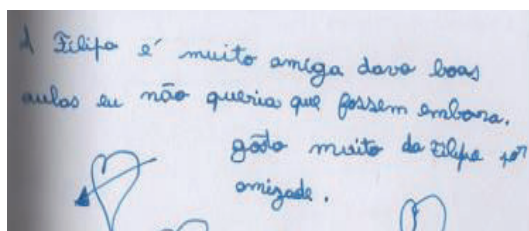 A Filipa é muito amiga dava boas
aulas eu não queria que fossem embora.
gosto muito da Filipa por
amizade.